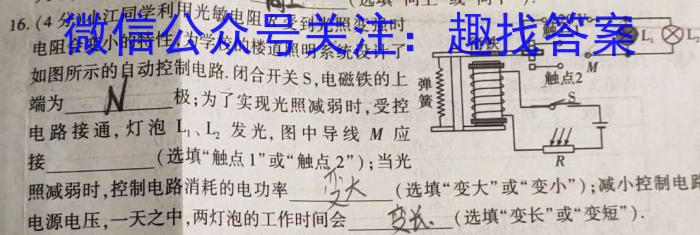 16.(4分)小江同学利用光敏电阻
电阻 为学校的楼道照明系统设计了
微信公众号关注：趣找答案
如图所示的自动控制电路.闭合开关S,电磁铁的上
端为 N 极;为了实现光照减弱时,受控
电路接通,灯泡 L₁、L₂ 发光,图中导线 M 应
接 (选填“触点1”或“触点2”);当光
照减弱时,控制电路消耗的电功率 变大 (选填“变大”或“变小”);减小控制电路
电源电压,一天之中,两灯泡的工作时间会 变长. (选填“变长”或“变短”).
弹簧
触点2
M
L₁
L₂
S
R